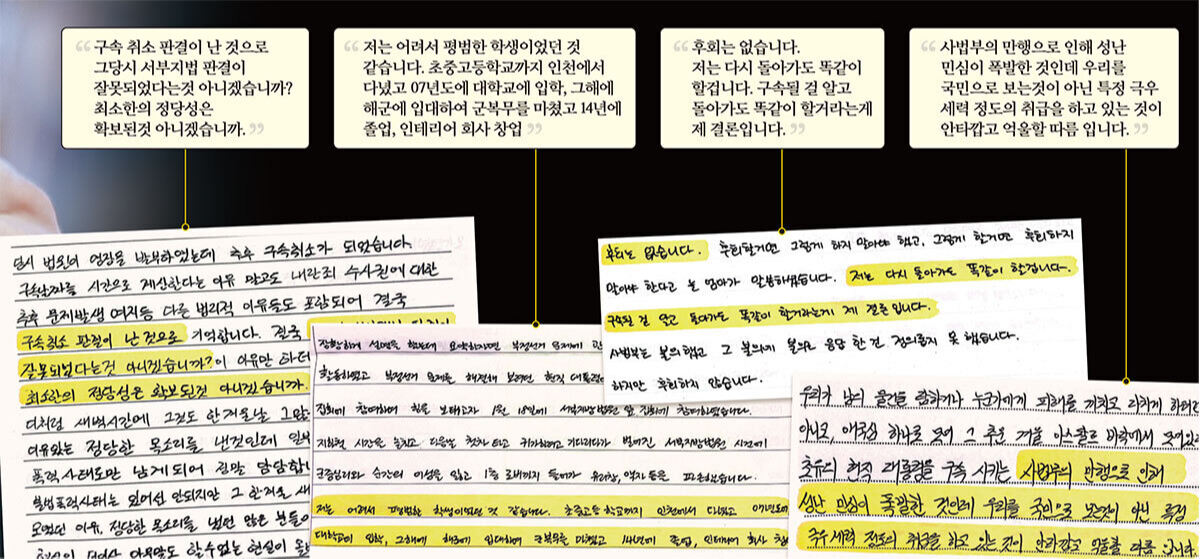 “ 구속 취소 판결이 난 것으로
그당시 서부지법 판결이
잘못되었다는것 아니겠습니까?
최소한의 정당성은
확보된것 아니겠습니까. ”
“ 저는 어려서 평범한 학생이었던 것
같습니다. 초중고등학교까지 인천에서
다녔고 07년도에 대학교에 입학, 그해에
해군에 입대하여 군복무를 마쳤고 14년에
졸업, 인테리어 회사 창업 ”
“ 후회는 없습니다.
저는 다시 돌아가도 똑같이
할겁니다. 구속될 걸 알고
돌아가도 똑같이 할거라는게
제 결론입니다. ”
“ 사법부의 만행으로 인해 성난
민심이 폭발한 것인데 우리를
국민으로 보는것이 아닌 특정 극우
세력 정도의 취급을 하고 있는 것이
안타깝고 억울할 따름 입니다. ”
당시 법원이 영장을 발부하였는데 추후 구속취소가 되었습니다.
구속날짜를 시간으로 계산한다는 이유 말고도 내란죄 수사권에 대한
추후 문제발생 여지등 다른 법리적 이유들도 포함되어 결국
구속취소 판결이 난 것으로 기억합니다. 결국
잘못되었다는것 아니겠습니까? 이 이유만 하더
최소한의 정당성은 확보된것 아니겠습니까.
더처럼 새벽시간에 그것도 한겨울날 그많
이유있는 정당한 목소리를 낸것인데 일부
폭력사태로만 남게되어 정말 답답합
불법폭력사태는 있어선 안되지만 그 한겨울 새
모였던 이유, 정당한 목소리를 냈던 많은 분들이
아무말도 할수없는 현실이
장황하게 설명을 했는데 요약하자면 부정선거 문제에 관
활동하였고 부정선거 문제를 해결해 보려던 현직 대통령
집회에 참여하여 힘을 보태고자 1월 18일에 서부지방법원 앞 집회에 참여하였습니다.
지하철 시간을 놓치고 다음날 첫차 타고 귀가하려고 기다리다가 벌어진 서부지방법원 사건에
군중심리와 순간의 이성을 잃고 1층 로비까지 들어가 유리창, 액자 등을 파손했습니다.
저는 어려서 평범한 학생이었던 것 같습니다. 초중고등학교까지 인천에서 다녔고 07년도에
대학교에 입학, 그해에 해군에 입대하여 군복무를 마쳤고 14년에 졸업, 인테리어 회사 창
후회는 없습니다. 후회할거면 그렇게 하지 말아야 했고, 그렇게 할거면 후회하지
말아야 한다고 본 엄마가 말씀하셨습니다. 저는 다시 돌아가도 똑같이 할겁니다.
구속될 걸 알고 돌아가도 똑같이 할거라는게 제 결론입니다.
사법부는 불의했고 그 불의에 불의로 응답 한 건 정의롭지 못 했습니다.
하지만 후회하지 않습니다.
우리가 남의 물건을 탐하거나 누군가에게 피해를 끼치고 다치게 하려고
아니고, 애국심 하나로 모여 그 추운 겨울 아스팔트 바닥에서 모여있
초유의 현직 대통령을 구속 시키는 사법부의 만행으로 인해
성난 민심이 폭발한 것인데 우리를 국민으로 보는것이 아닌 특정
극우세력 정도의 취급을 하고 있는 것이 안타깝고 억울할 따름 입니다